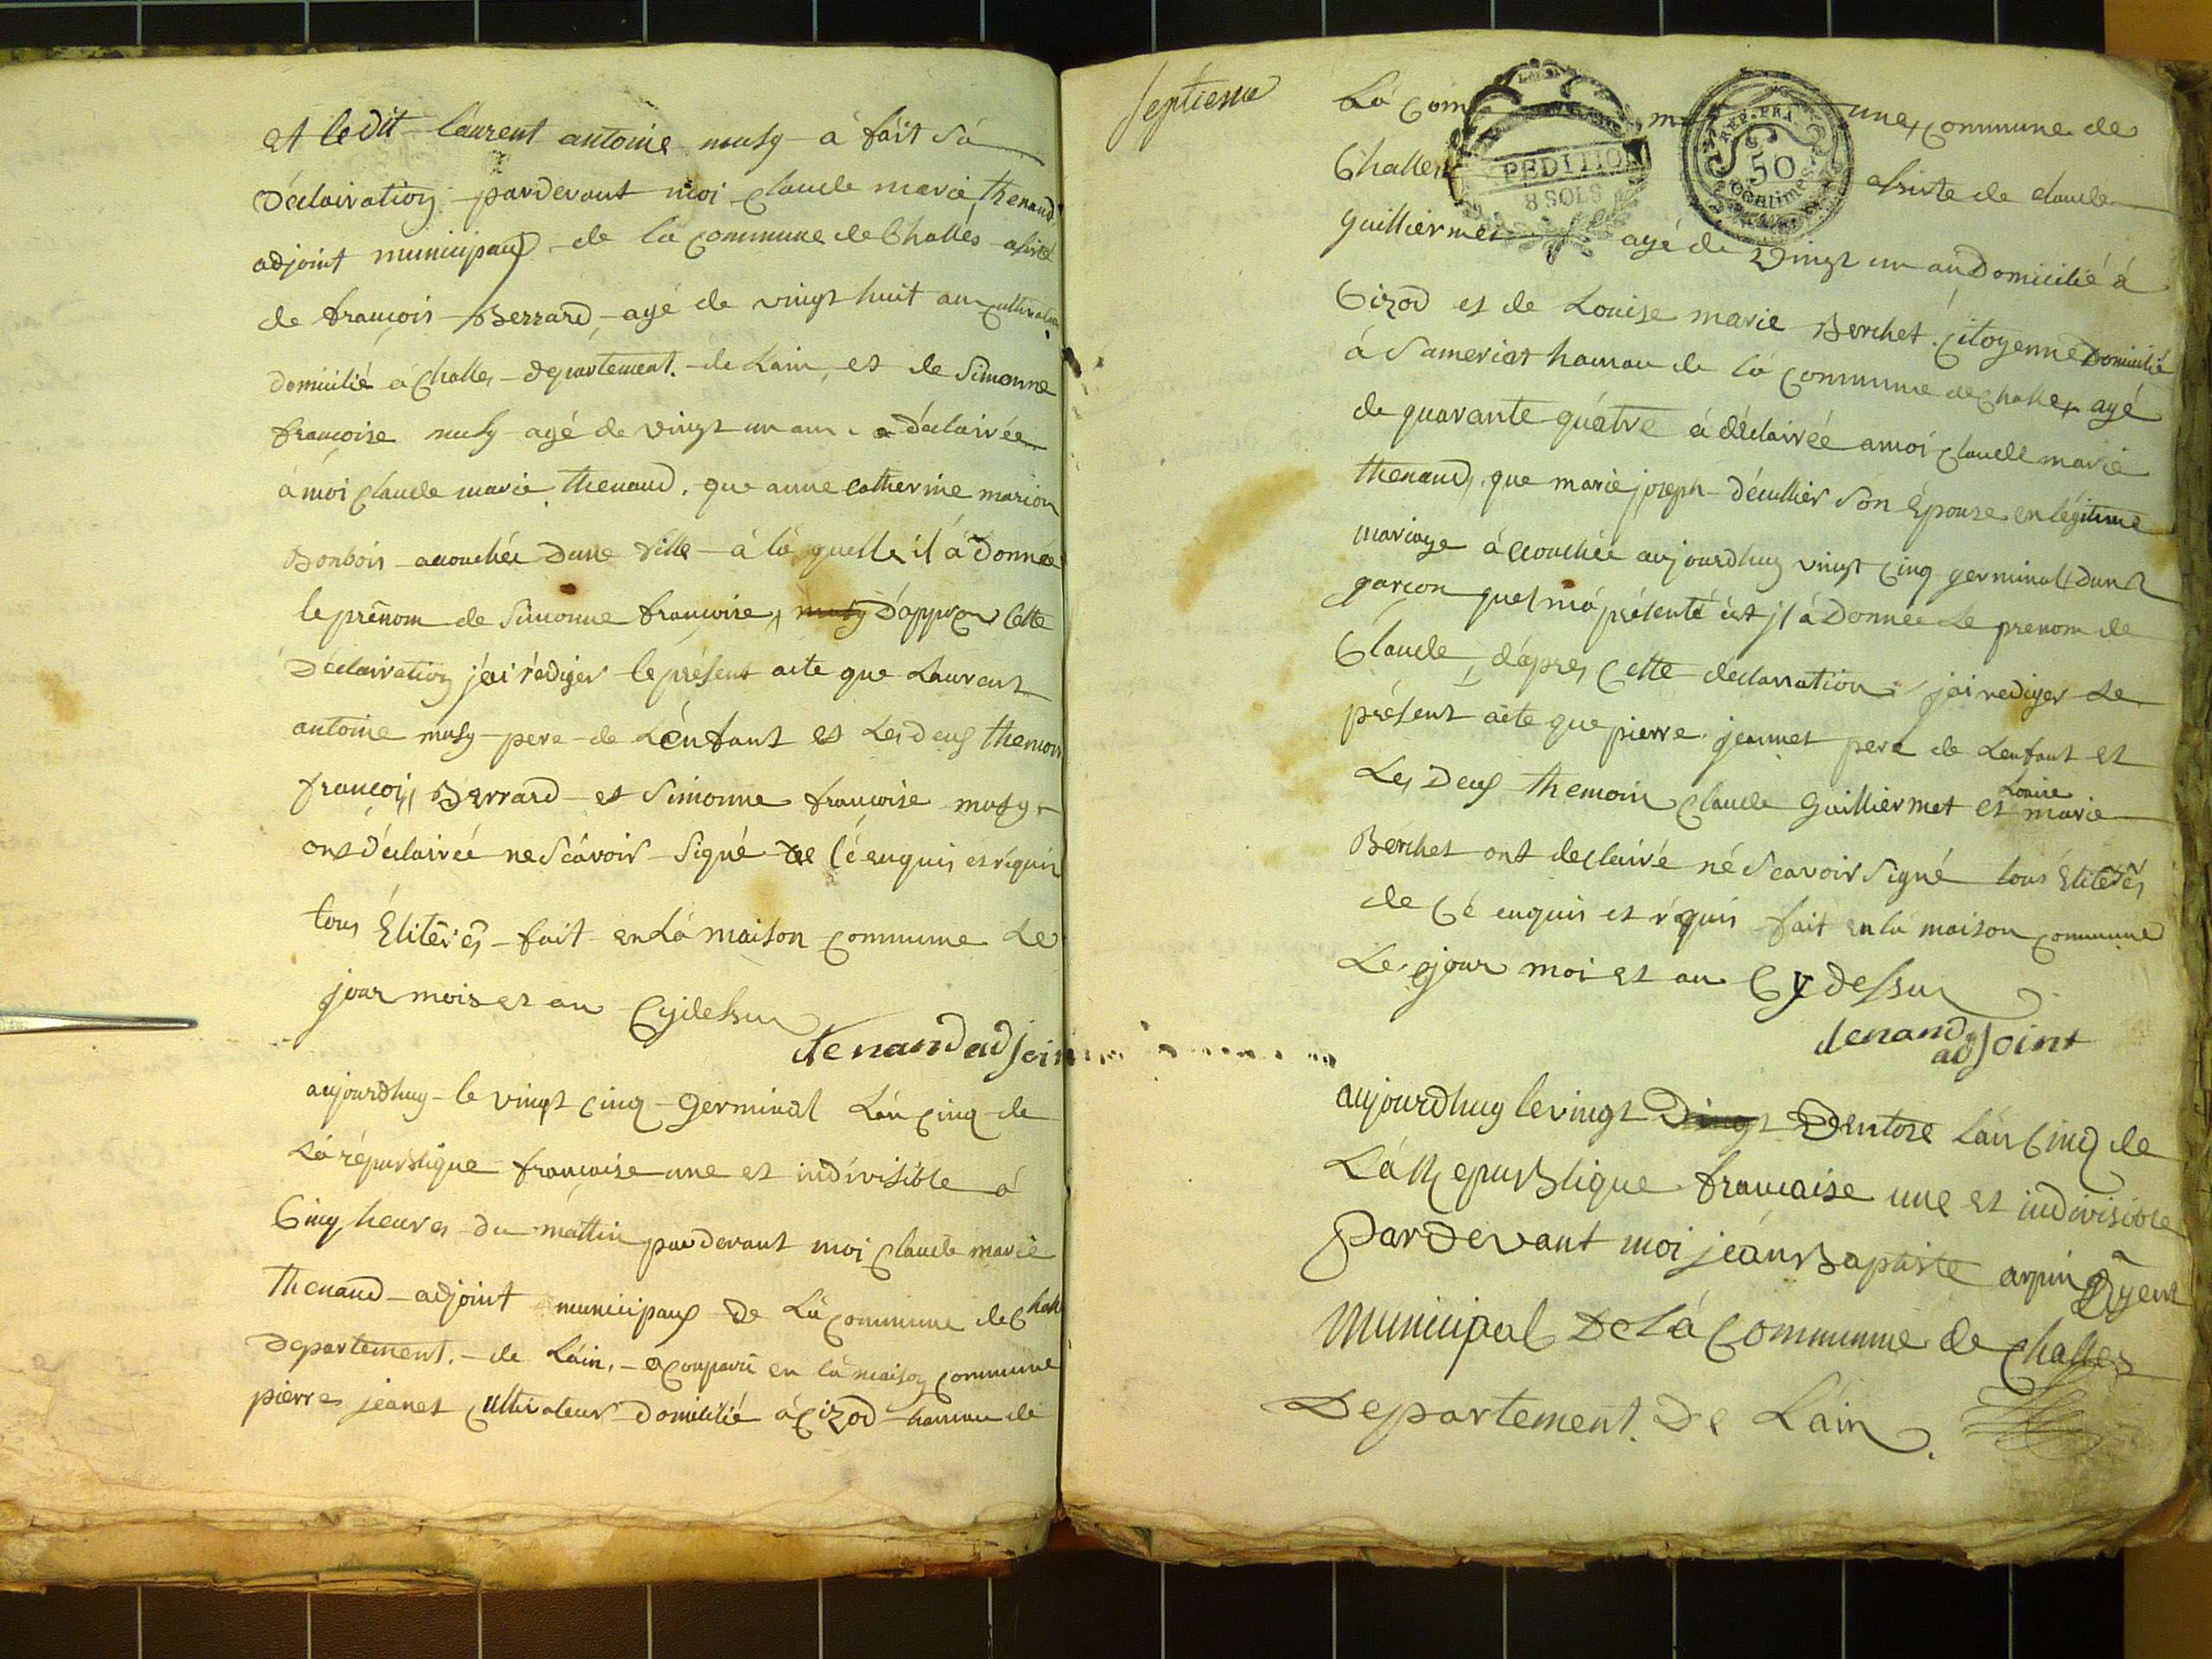 et ledit laurent antoine musy à fait sà
déclairation pardevant moi claude marie thenaud
adjoint municipaux de la commune de Challes assisté
de françois Berrard agé de vingt huit an cultivateur
domicilié à challes departement. de Lain, et de Simonne
françoise musy agé de vingt un an. a déclairée
à moi claude marie thenaud. que anne catherine marion
Bonbois accouchée dune fille à là quelle il à donnée
le prénom de Simonne françoise, musy d'apprex cette
Déclairation j'ai rédiger le présent acte que Laurent
antoine musy pere de Lénfant et Les deux themoin
françois Berrard et Simonne françoise musy
ont déclairée ne scavoir signé de cé enquis et réquis
tous Élitérés fait en Là maison commune Le
jour mois et an Cydessu
denand adjoin
aujourdhuy le vingt cinq Germinal Lán cinq de
Là républigue françoise une et indivisible à
Cinq heures du mattin pardevant moi claude marie
Thenaud adjoint municipaux de La commune de Chall
Departement. de Láin, a comparu en là maison commune
pierre jeanet cultivateur domicilié à Cizod hamau de
septieme
Là Com une, commune de
Challes assiste de claude
Guilliermet agé de vingt un an Domicilié à
Cizod et de Louise marie Berchet. citoyenne Domicilié
à Sameriat hamau de là commune de Challes agé
de quarante quatre à déclairée a moi claude marie
thenaud, que marie joseph décullier son Épouse en légitime
mariage à ccouchée aujourdhuy vingt cinq germinal dun
garçon quel má présenté est jl à Donnée Le prenom de
Claude, d'apres cette déclarration jai rediger Le
présent acte que pierre jeannet pere de Lenfant et
Les Deux themoin claude Guilliermet et Louise marie
Berchet ont declairé né scavoir signé tous Élitérés
de Cé enquis et réquis fait en la maison commune
Le jour moi et an Cy dessu
denand adjoint
aujourdhuy le vingt Vingt Ventose Lán Cinq de
Lá Republigue française une et indivisible
Par devant moi jean Baptiste arpin Agent
Municipal De Lá Commune de Challes
Departement. De Láin.
EXPEDITION
8 SOLS
REP. FRA.
50
Centimes